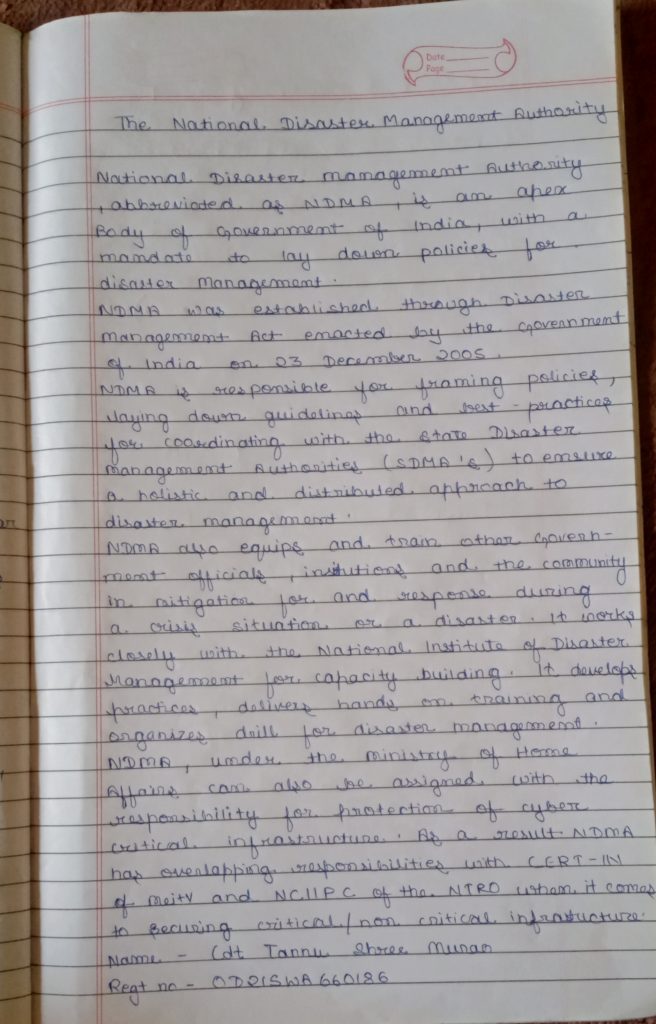 Date
Page
The National Disaster Management Authority
National Disaster management Authority
, abbreviated as NDMA, is an apex
Body of Government of India, with a
mandate to lay down policies for
disaster management.
NDMA was established through Disaster
management Act enacted by the Government
of India on 23 December 2005.
NDMA is responsible for framing policies,
laying down guidelines and best-practices
for coordinating with the State Disaster
management Authorities (SDMA's) to ensure
a holistic and distributed approach to
disaster management.
NDMA also equips and train other Govern-
ment officials, insitutions and the community
in mitigation for and response during
a crisis situation or a disaster. It works
closely with the National Institute of Disaster
Management for capacity building. It develops
practices, delivers hands on training and
organizes drill for disaster management.
NDMA, under the ministry of Home
Affairs can also be assigned with the
responsibility for protection of cyber
critical infrastructure. As a result NDMA
has overlapping responsibilities with CERT-IN
of meitv and NCIIPC of the NTRO when it comes
to securing critical/non critical infrastucture.
Name - Cdt Tannu Shree
Regt no - OD21SWA660186